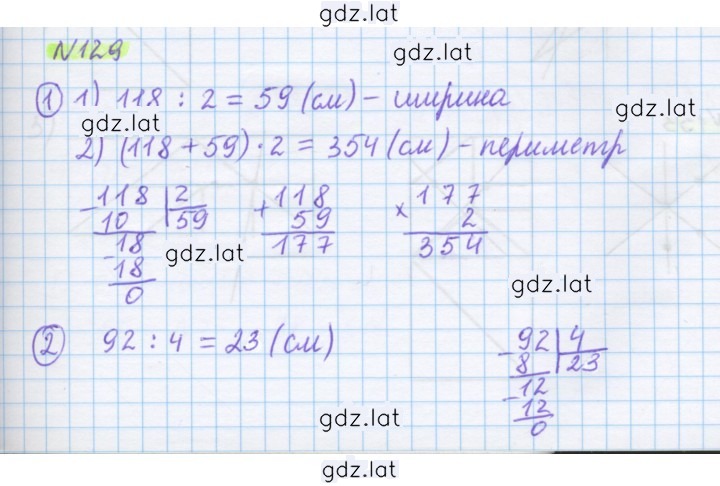 gdz.lat
N129
gdz.lat
① 1) 118 : 2 = 59 (см) – ширина
gdz.lat
gdz.lat
2) (118 + 59) · 2 = 354 (см) – периметр
– 118 | 2
10 59
– 18
18
0
+ 118
59
177
× 177
2
354
gdz.lat
gdz.lat
② 92 : 4 = 23 (см)
– 92 | 4
8 23
– 12
12
0
gdz.lat
gdz.lat